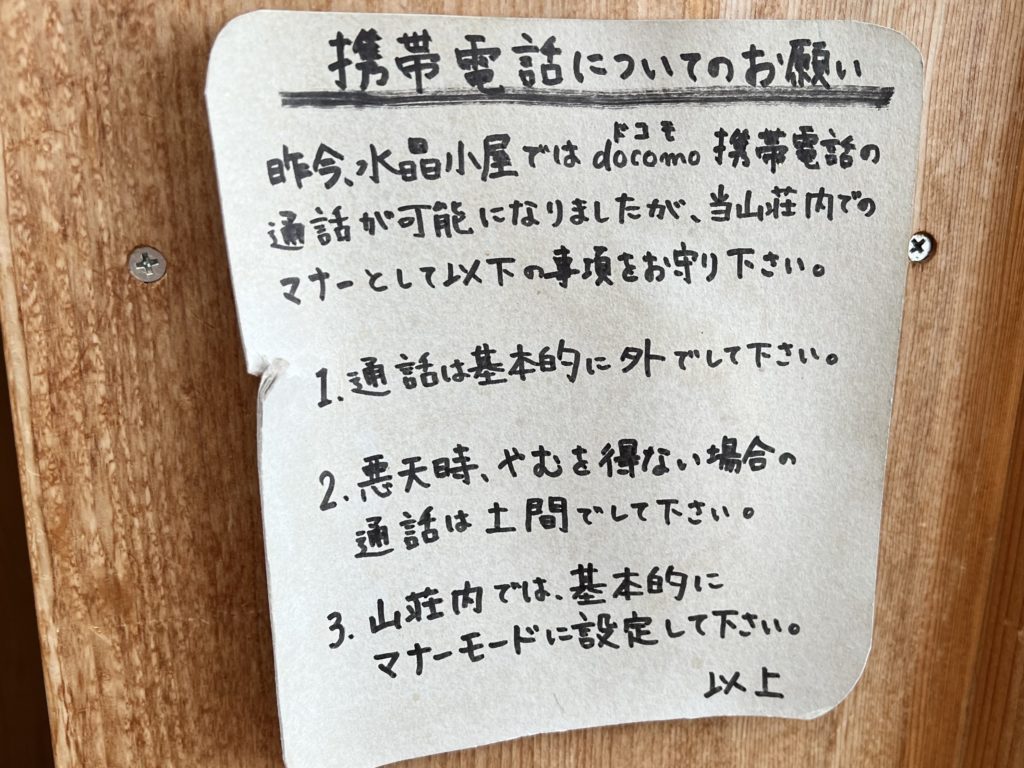 携帯電話についてのお願い
ドコモ
昨今、水晶小屋ではdocomo携帯電話の
通話が可能になりましたが、当山荘内での
マナーとして以下の事項をお守り下さい。
1.通話は基本的に外でして下さい。
2.悪天時、やむを得ない場合の
通話は土間でして下さい。
3.山荘内では、基本的に
マナーモードに設定して下さい。
以上